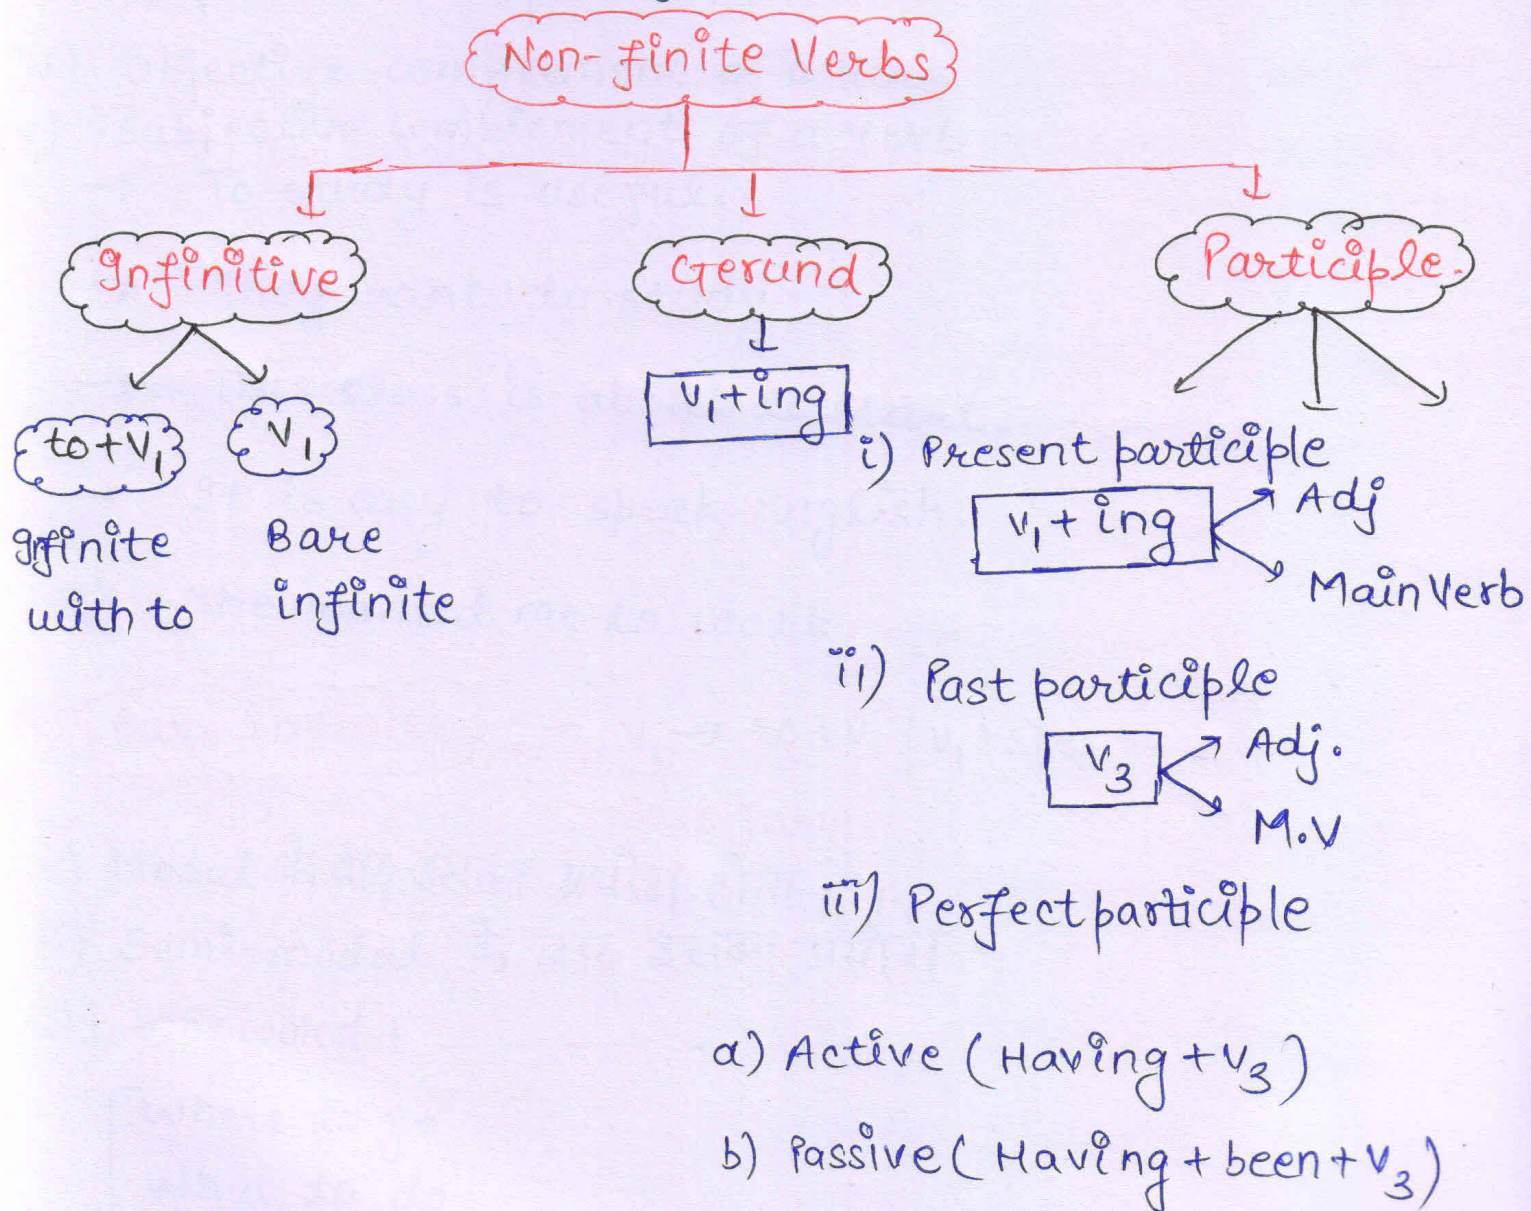 Non-finite Verbs
Infinitive
Gerund
Participle.
to + V1
V1
Infinite
with to
Bare
infinite
V1 + ing
i) Present participle
V1 + ing
Adj
Main Verb
ii) Past participle
V3
Adj.
M.V
iii) Perfect participle
a) Active ( Having + V3 )
b) Passive ( Having + been + V3 )